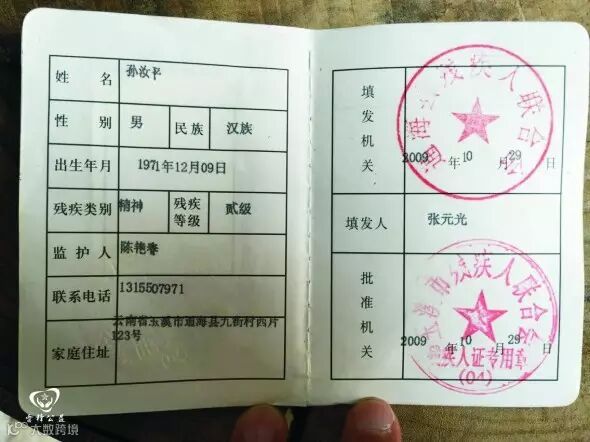 姓 名 孙汝平
性 别 男 民族 汉族
出生年月 1971年12月09日
残疾类别 精神 残疾等级 贰级
监 护 人 陈艳春
联系电话 1315507971
家庭住址 云南省玉溪市通海县九街村四片
123号
填发机关
通海县残疾人联合会
2009 年 10 月 29 日
填发人 张元光
批准机关
玉溪市残疾人联合会
残疾人证专用章
(01)
2009 年 10 月 29 日
大数跨境